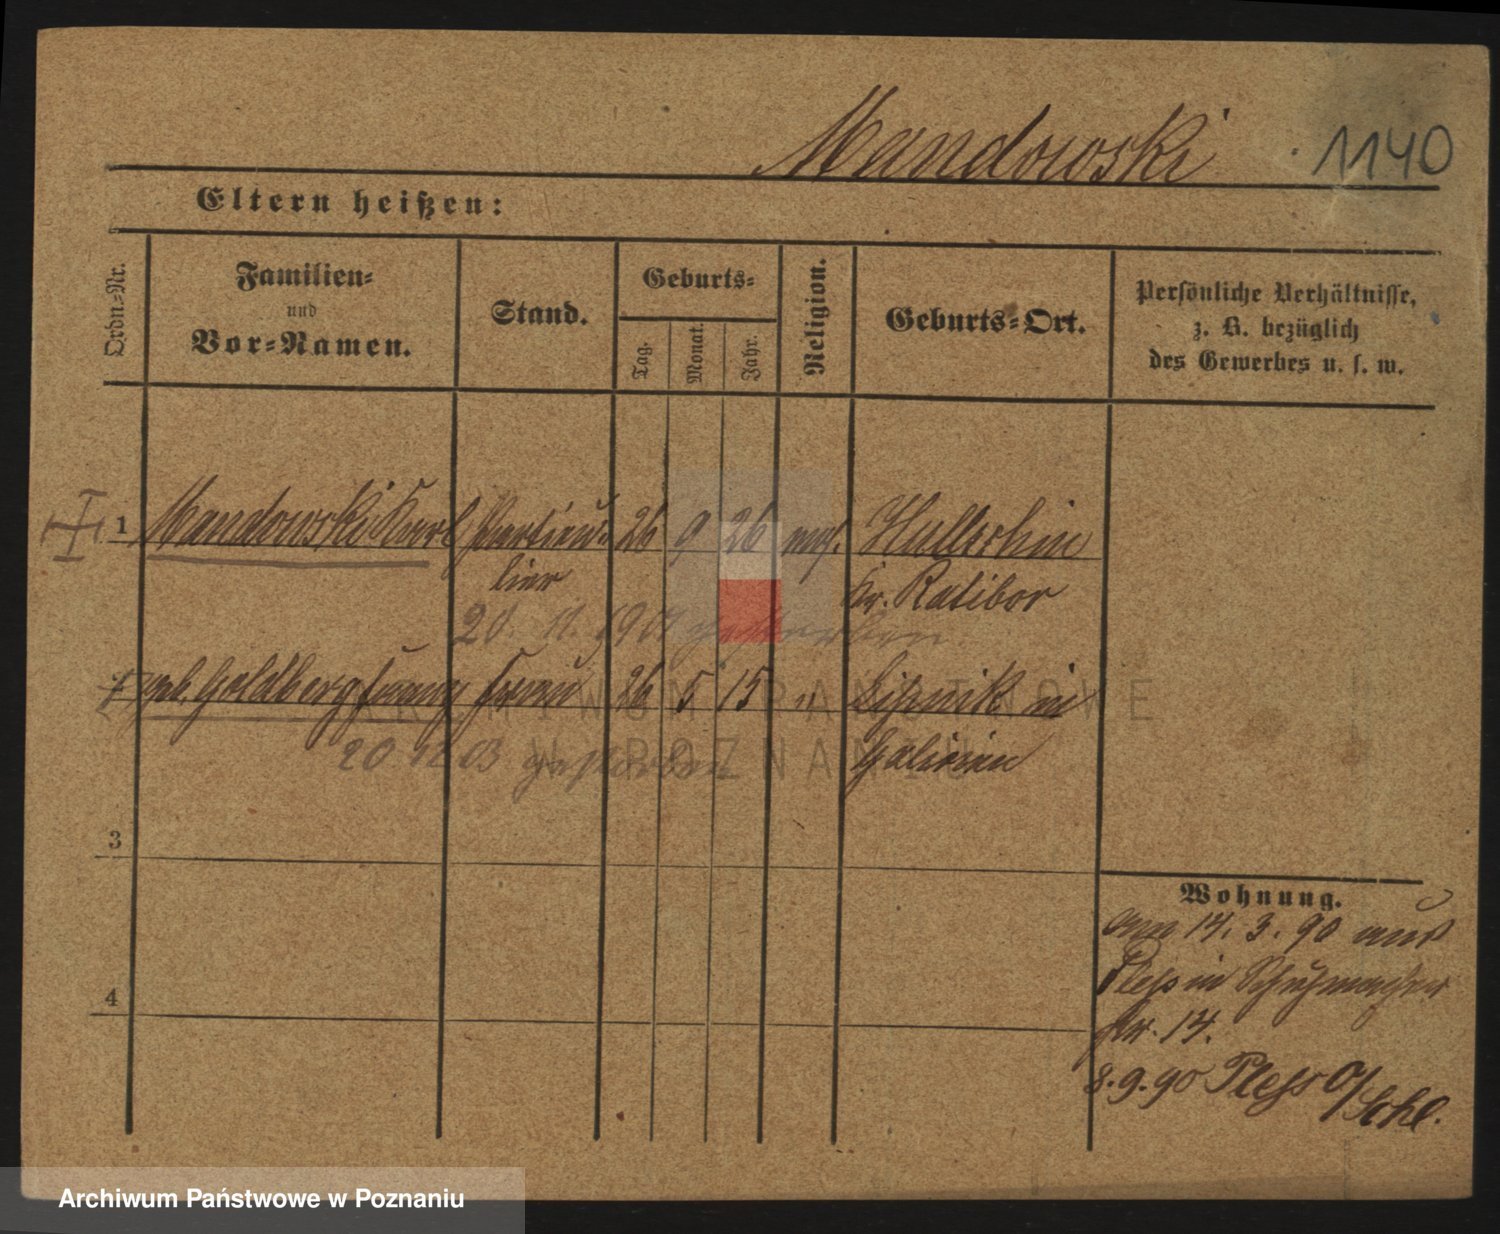 Mandowski 1140
Eltern heißen:
Ordn.-Nr.
Familien-
und
Vor-Namen.
Stand.
Geburts-
Tag.
Monat.
Jahr.
Religion.
Geburts-Ort.
Persönliche Verhältnisse,
z. B. bezüglich
des Gewerbes u. s. w.
1 Mandowski Karl Particu- 26 9 26 mos. Hultschin
lier Kr. Ratibor
20. 11. gestorben
geb. Goldberg Frau 26 5 15 " Lipnik in
Galizien
20. 12 03 gestorben
3
4
Wohnung.
am 14. 3. 90 aus
Pless in Schuhmacher
str. 14.
8. 9. 90 Pless O/
Schl.
ARCHIWUM PAŃSTWOWE
W POZNANIU
Archiwum Państwowe w Poznaniu